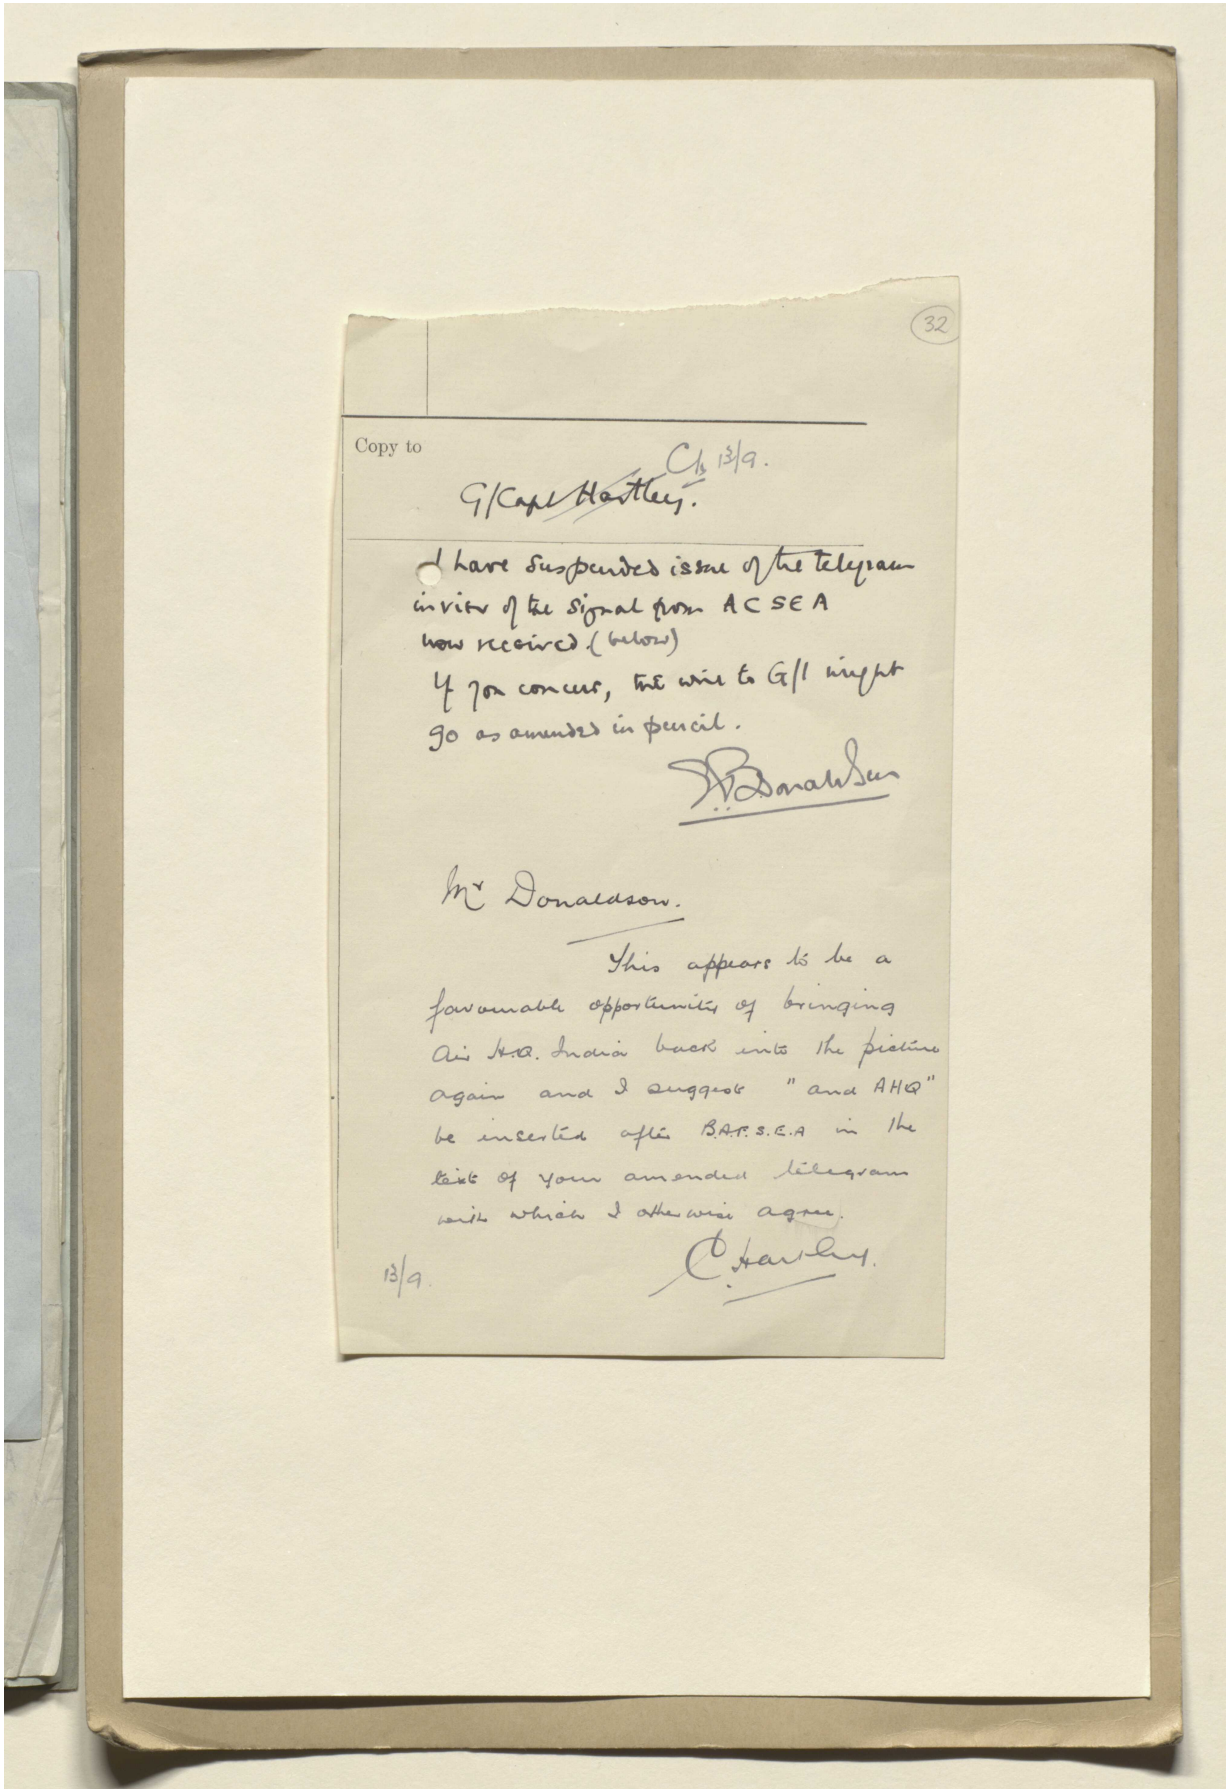 32
Copy to
Ch 13/9.
G/Capt Hartley.
I have suspended issue of the telegram
in view of the signal from ACSEA
now received. (below)
If you concur, the wire to G/I might
go as amended in pencil.
Donaldson
Mr Donaldson.
This appears to be a
favourable opportunity of bringing
Air H.Q. India back into the picture
again and I suggest "and AHQ"
be inserted after B.A.F.S.E.A in the
text of your amended telegram
with which I otherwise agree.
C. Hartley.
13/9.